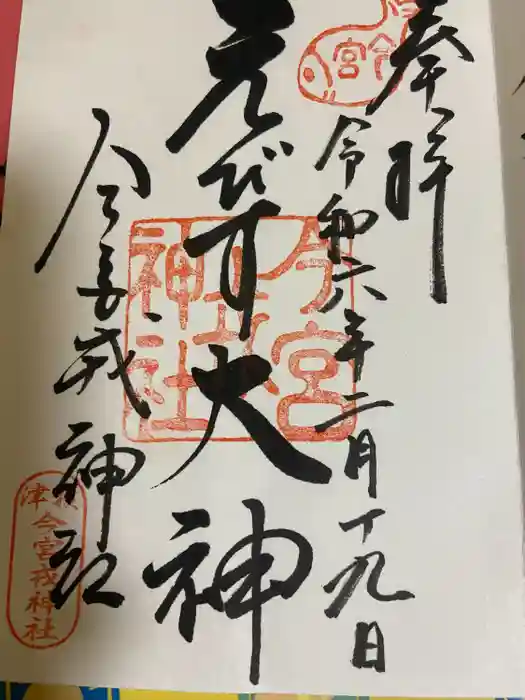 奉拝
令和六年二月十九日
えびす大神
今宮戎神社
今宮
今宮
戎
神社
津
今宮戎神社